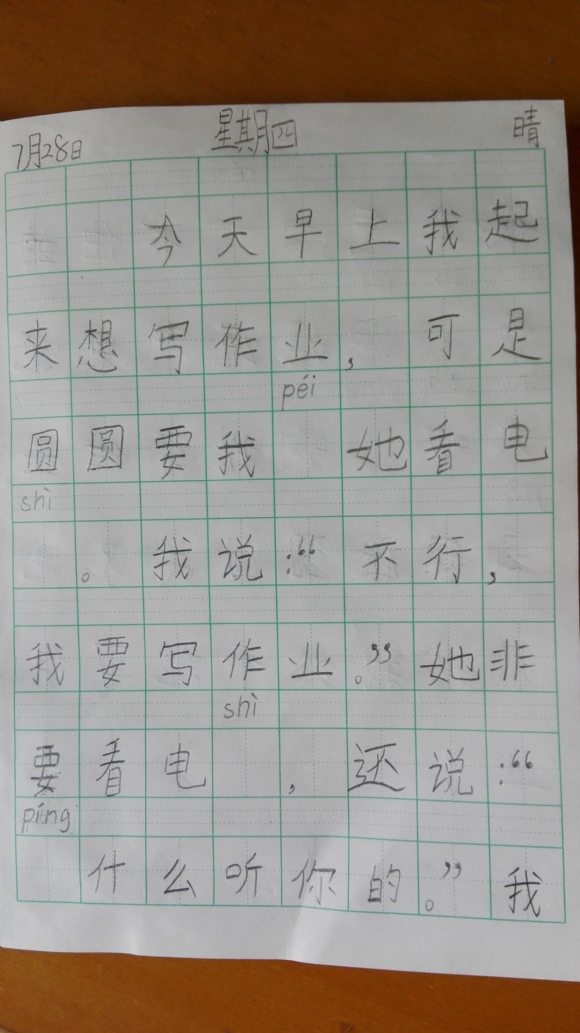 7月28日 星期四 晴
今天早上我起
来想写作业，可是
péi
圆圆要我 她看电
shì
。我说：“不行，
我要写作业。”她非
shì
要看电 ，还说：“
píng
什么听你的。”我